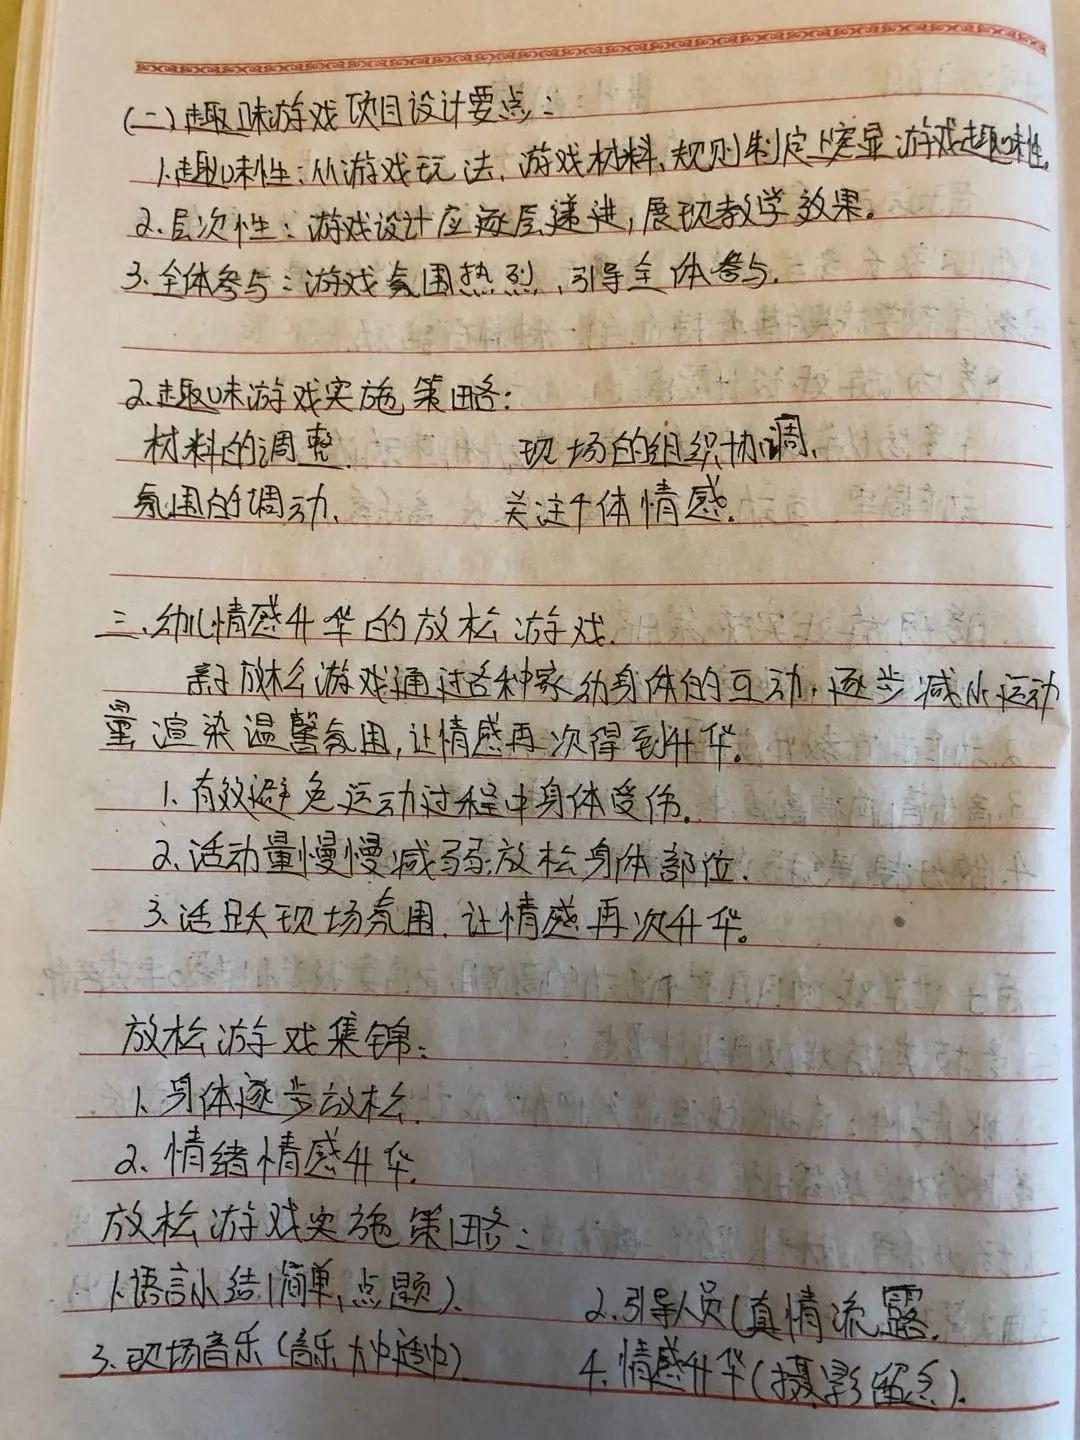 (二)趣味游戏项目设计要点:
1.趣味性:从游戏玩法、游戏材料、规则制定上突显游戏趣味性。
2.层次性:游戏设计应逐层递进,展现教学效果。
3.全体参与:游戏氛围热烈、引导全体参与.
2.趣味游戏实施策略:
材料的调整. 现场的组织协调.
氛围的调动、 关注个体情感.
三、幼儿情感升华的放松游戏.
亲子放松游戏通过各种家幼身体的互动,逐步减小运动
量,渲染温馨氛围,让情感再次得到升华。
1.有效避免运动过程中身体受伤.
2.活动量慢慢减弱放松身体部位.
3.活跃现场氛围.让情感再次升华。
放松游戏集锦:
1、身体逐步放松.
2、情绪情感升华.
放松游戏实施策略:
1.语言小结(简单,点题). 2.引导人员(真情流露.
3.现场音乐(音乐大小适中) 4.情感升华(摄影留念).